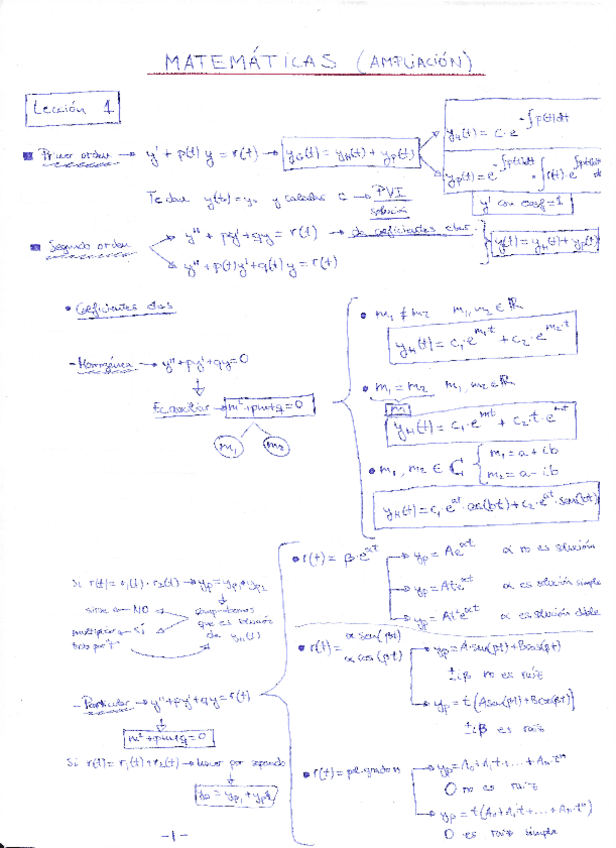 MATEMÁTICAS (AMPLIACIÓN)
Lección 1
Primer orden → y' + p(t) y = r(t) → y_G(t) = y_H(t) + y_P(t)
y_H(t) = c · e^{-∫p(t)dt}
y_P(t) = e^{-∫p(t)dt} · ∫r(t) · e^{∫p(t)dt}
y' con coef = 1
Te dan y(t₀) = y₀ y calculas c → PVI
solución
Segundo orden
y'' + py' + qy = r(t) → de coeficientes ctes.
y'' + p(t)y' + q(t)y = r(t)
y(t) = y_H(t) + y_P(t)
• Coeficientes ctes
- Homogénea → y'' + py' + qy = 0
Ec. auxiliar → m² + pm + q = 0
m₁ m₂
• m₁ ≠ m₂ m₁, m₂ ∈ ℝ
y_H(t) = c₁ · e^{m₁t} + c₂ · e^{m₂·t}
• m₁ = m₂ m₁, m₂ ∈ ℝ
m
y_H(t) = c₁ · e^{mt} + c₂ · t · e^{mt}
• m₁, m₂ ∈ ℂ { m₁ = a + ib
m₂ = a - ib
y_H(t) = c₁ · e^{at} · cos(bt) + c₂ · e^{at} · sen(bt)
Si r(t) = r₁(t) · r₂(t) → y_P = y_{P1} · y_{P2}
comprobamos
que es solución
de y_H(t)
NO
multiplicar ← SÍ
todo por "t"
- Particular → y'' + py' + qy = r(t)
m² + pm + q = 0
Si r(t) = r₁(t) + r₂(t) → hacer por separado
y_P = y_{P1} + y_{P2}
• r(t) = β · e^{αt}
y_P = Ae^{αt} α no es solución
y_P = Ate^{αt} α es solución simple
y_P = At²e^{αt} α es solución doble
• r(t) = α sen(βt)
α cos(βt)
y_P = A sen(βt) + B cos(βt)
±iβ no es raíz
y_P = t(A sen(βt) + B cos(βt))
±iβ es raíz
• r(t) = pol. grado n
y_P = A₀ + A₁t + ... + Aₙ·tⁿ
0 no es raíz
y_P = t(A₀ + A₁t + ... + Aₙ·tⁿ)
0 es raíz simple
-1-